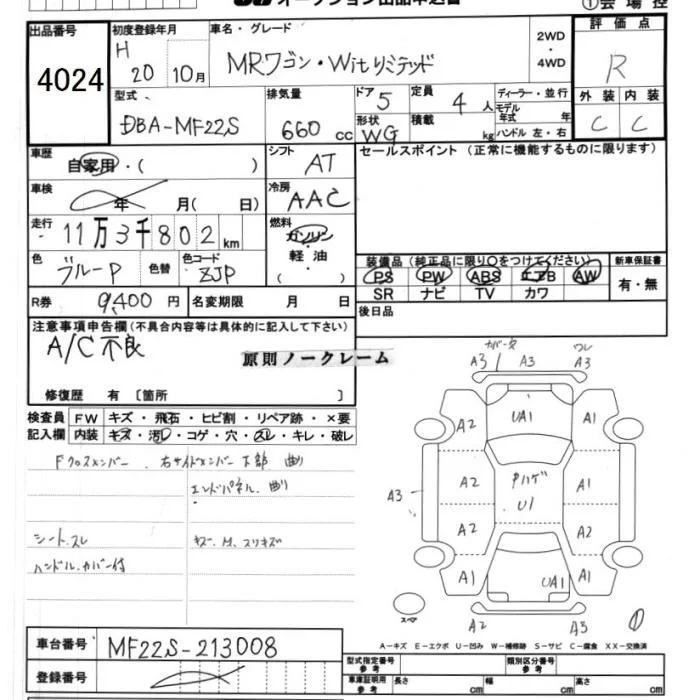 オークション出品申込書
①会場控
出品番号 4024
初度登録年月 H 20 10月
車名・グレード MRワゴン・Witリミテッド
2WD・4WD
評価点 R
型式 DBA-MF22S
排気量 660 cc
ドア 5 定員 4 人
形状 WG 積載 kg
ディーラー・並行
モデル年式 年
ハンドル 左・右
外装 内装
C C
車歴 自家用・( )
シフト AT
セールスポイント (正常に機能するものに限ります)
車検 年 月( 日)
冷房 AAC
走行 11万3千802km
燃料 ガソリン・軽油・( )
色 ブルーP 色替 色コード ZJP
装備品 (純正品に限り○をつけてください)
新車保証書
PS PW ABS エアB AW
SR ナビ TV カワ
有・無
R券 9,400 円 名変期限 月 日
後日品
注意事項申告欄(不具合内容等は具体的に記入して下さい)
A/C不良
原則ノークレーム
修復歴 有 〔箇所 〕
検査員記入欄
FW キズ・飛石・ヒビ割・リペア跡・×要
内装 キズ・汚レ・コゲ・穴・スレ・キレ・破レ
Fクロスメンバー、右サイドメンバー下部 曲り
エンドパネル 曲り
シート スレ
キズ・M、スリキズ
ハンドル カバー付
カバー欠 ワレ
A3 A3 A3
A2 UA1 A1
A3 A2 Pハゲ A1
U1
A2 A2
A1 UA1 A1
スペア A2 A3
A-キズ E-エクボ U-凹み W-補修跡 S-サビ C-腐食 XX-交換済
車台番号 MF22S-213008
登録番号
型式指定番号 参考 類別区分番号 参考
車庫証明用 参考 長さ cm 幅 cm 高さ cm